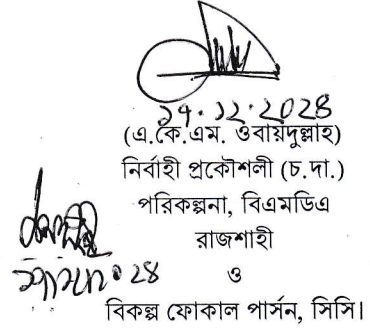 ২৭.১২.২০২৪
(এ.কে.এম. ওবায়দুল্লাহ)
নির্বাহী প্রকৌশলী (চ.দা.)
পরিকল্পনা, বিএমডিএ
রাজশাহী
ও
বিকল্প ফোকাল পার্সন, সিসি।